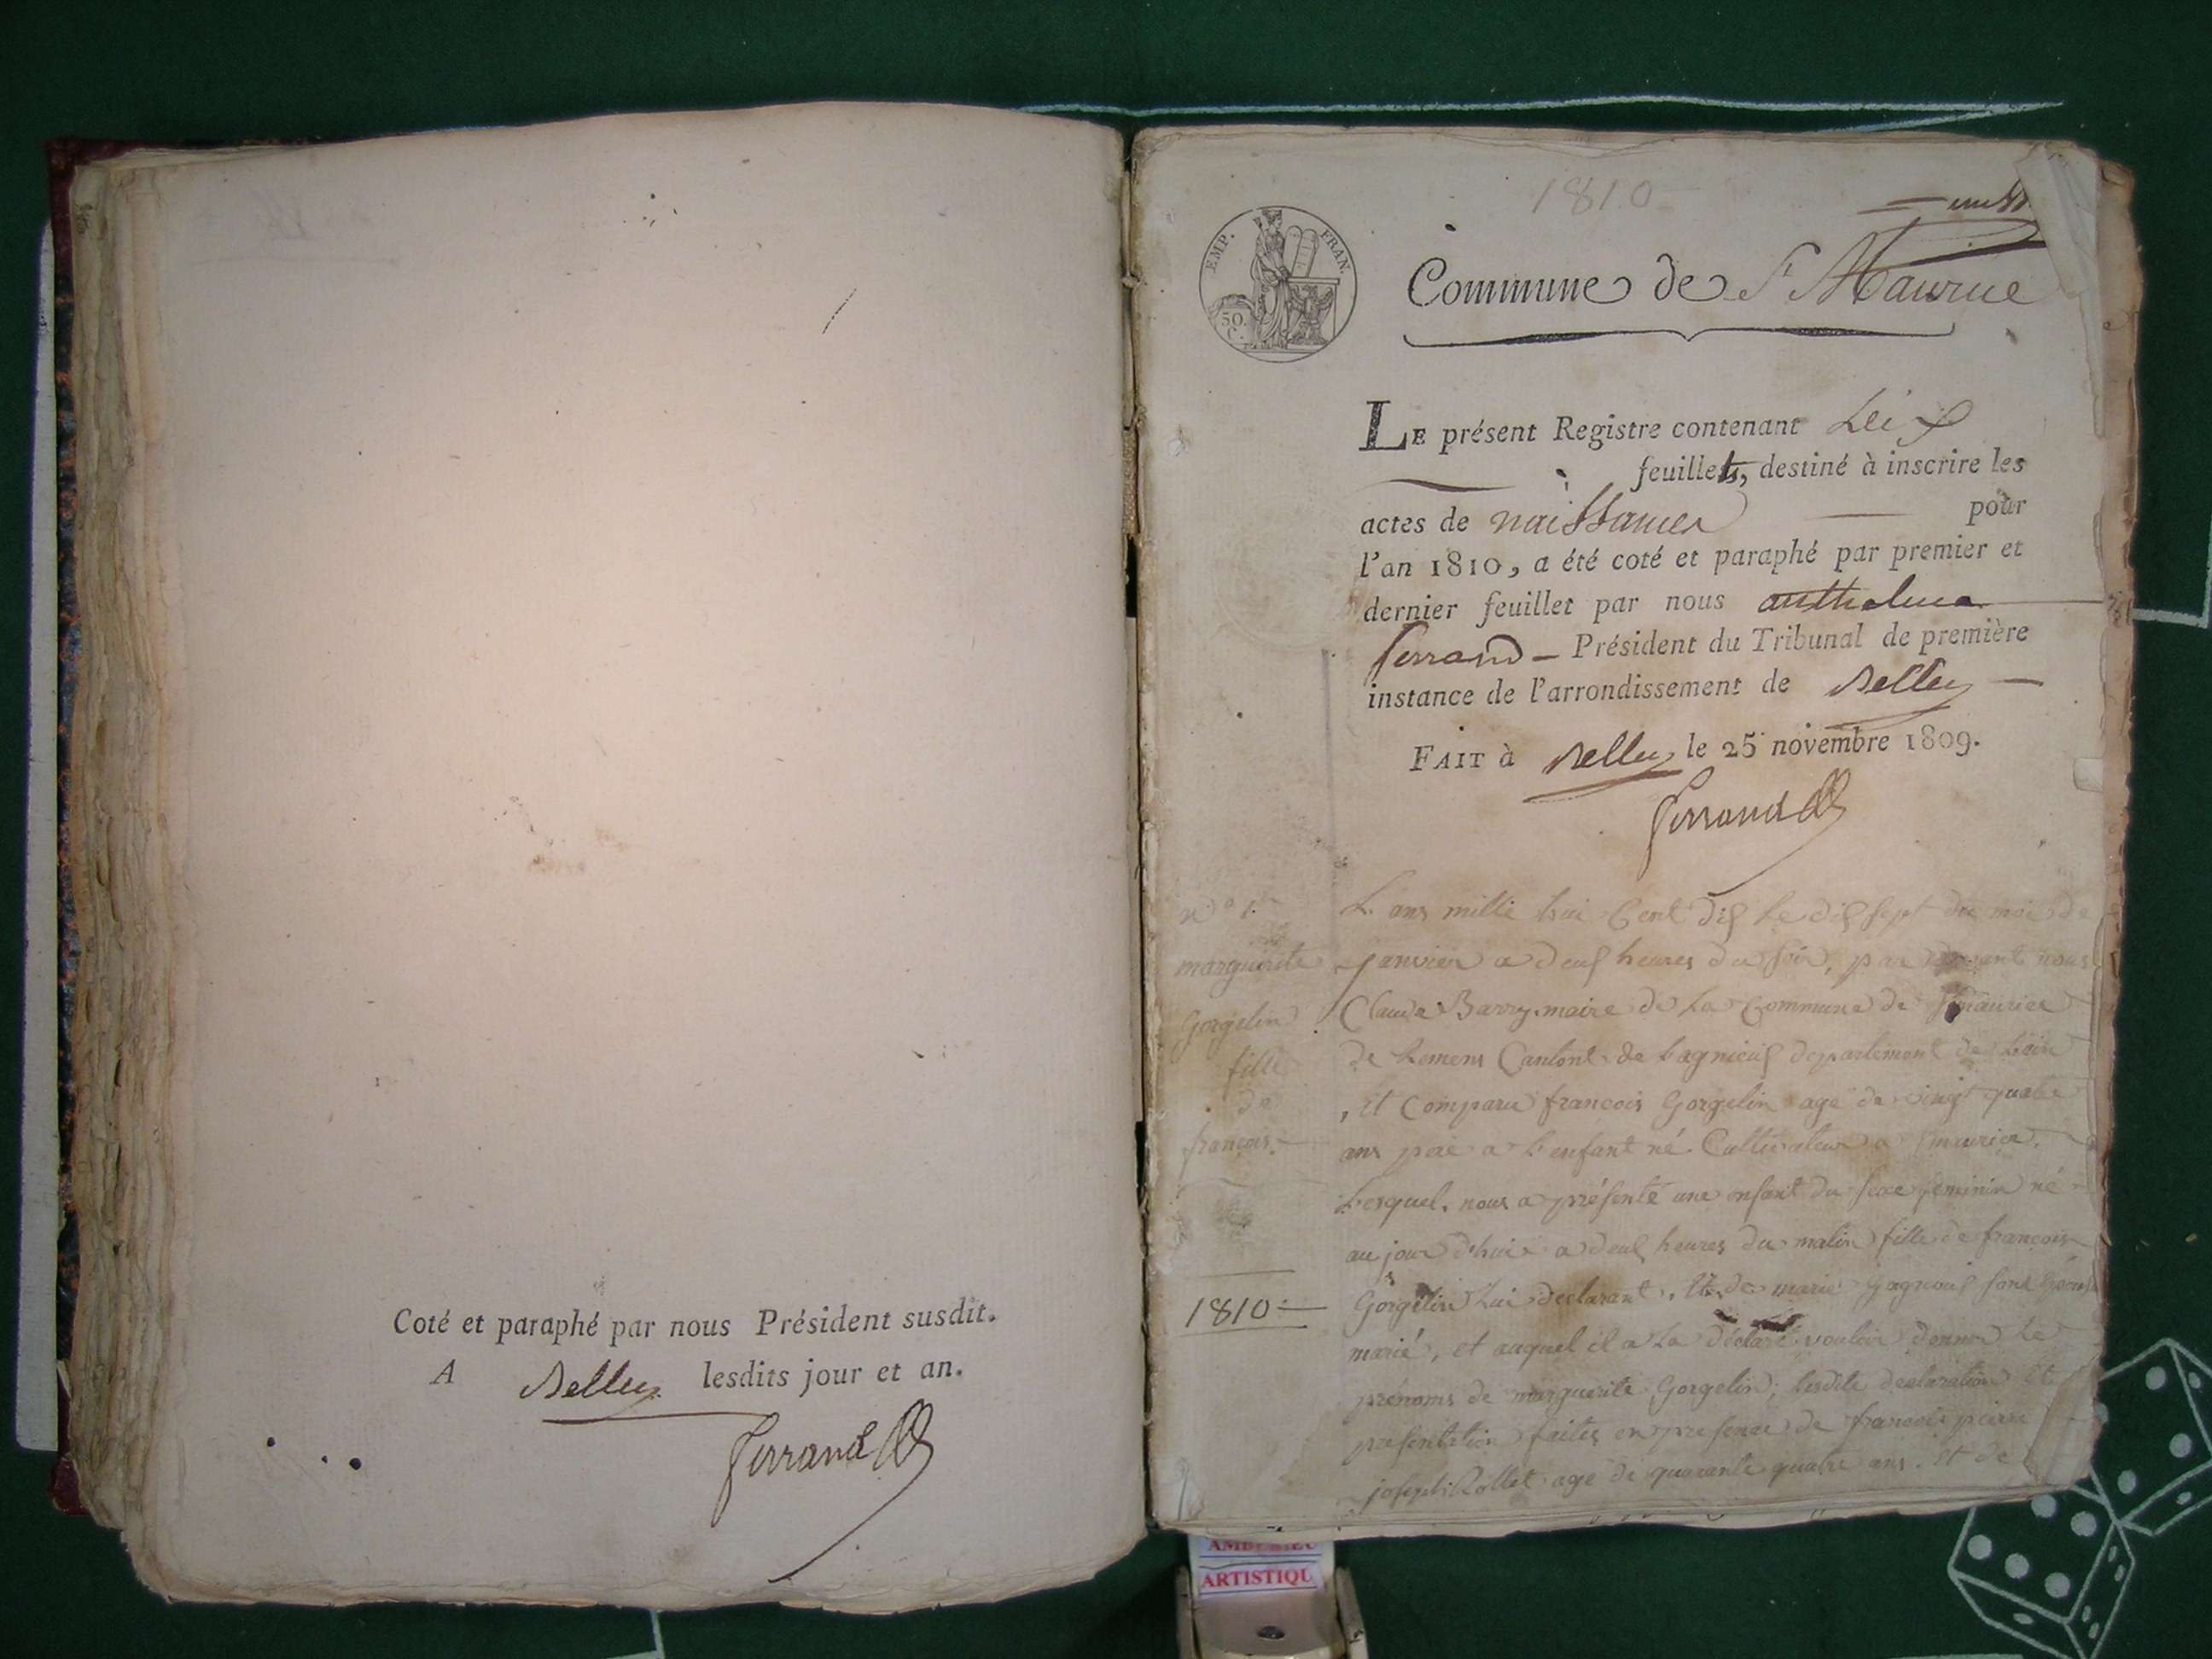 Coté et paraphé par nous Président susdit.
A Belley lesdits jour et an.
Ferrand
1810
EMP. FRAN.
50 C.
Commune de St Maurice
LE présent Registre contenant Six
feuillets, destiné à inscrire les
actes de naissances pour
l'an 1810, a été coté et paraphé par premier et
dernier feuillet par nous anthelme
ferrand Président du Tribunal de première
instance de l'arrondissement de Belley
FAIT à Belley le 25 novembre 1809.
Ferrand
n° 1.
marguerite
Gorgelin
fille
de
françois
1810
L'ans mille hui Cent dix Le dix sept du mois de
janvier a deux heures du soir, par devant nous
Claude Barry maire de La Commune de St maurice
de Remens Canton de Lagnieux departement de L'ain
, Et Comparu francois Gorgelin agé de vingt quatre
ans pere a L'enfant né Cultivateur a St maurice.
Lesquel nous a présenté une enfant du sexe feminin né
au jour d'hui a deux heures du matin fille de francois
Gorgelin Lui declarant, Et de marie
marié, et auquel il a La déclaré vouloir donner Le
prenoms de marguerite Gorgelin; Lesdite declaration Et
presentation faites en presence de francois pierre
joseph Rollet agé de quarante quatre ans. Et de
AMBERIEU
ARTISTIQU